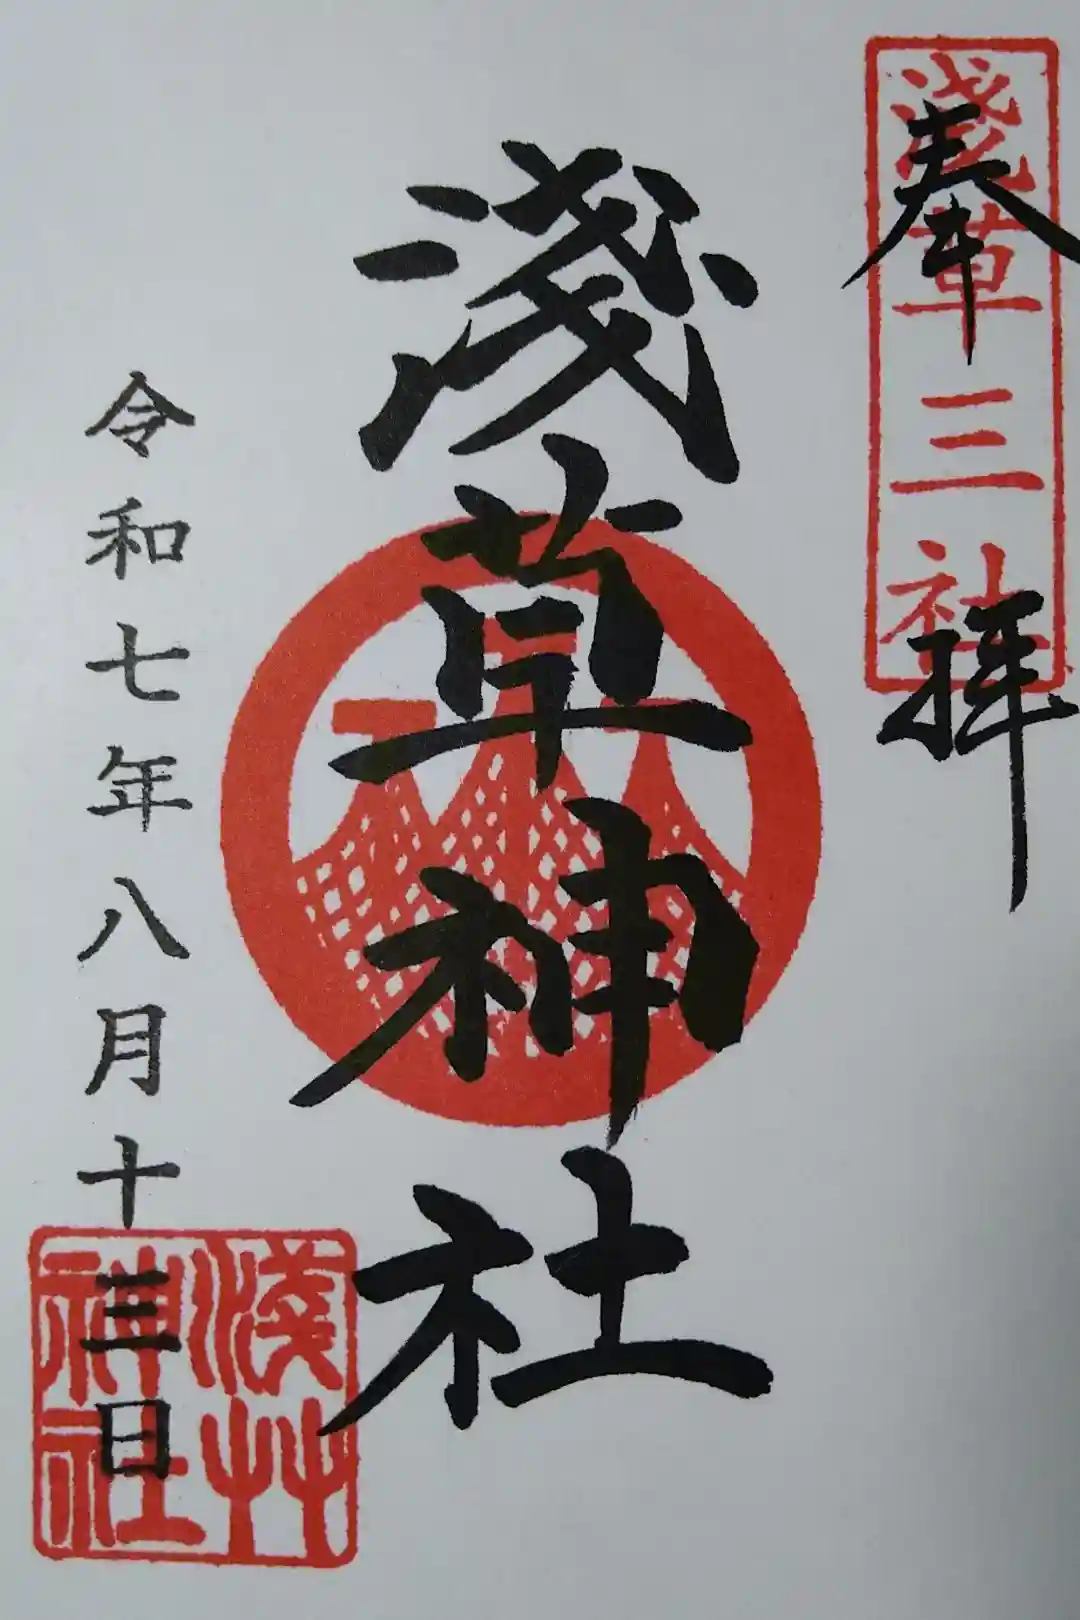 奉拝
淺草三社
淺草神社
令和七年八月十三日
淺艸神社